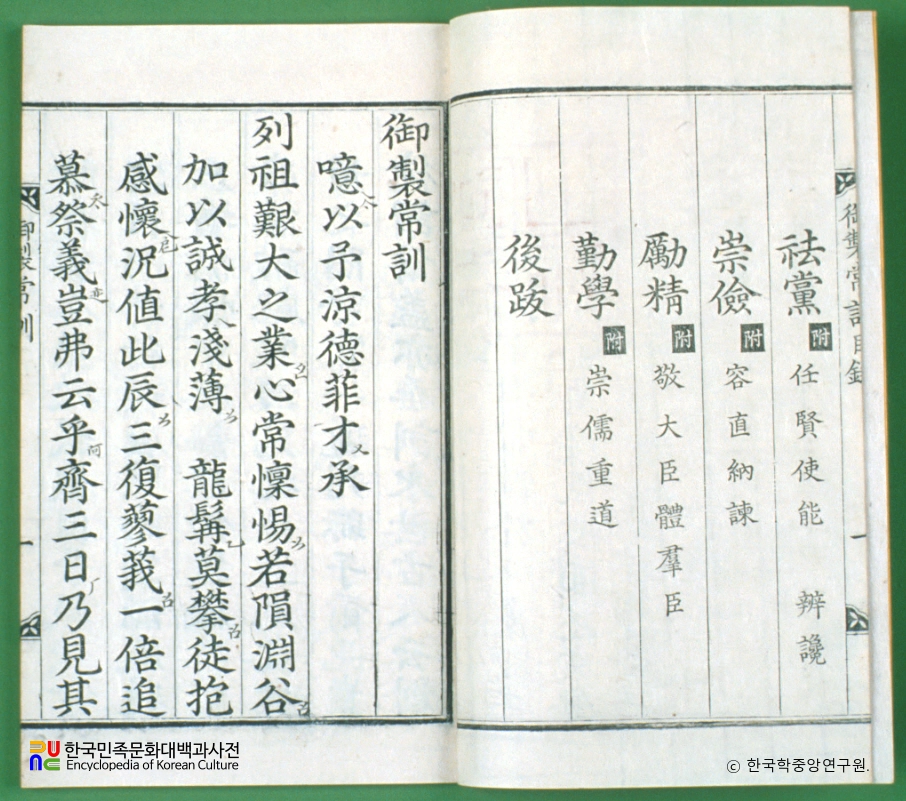 御製常訓目錄
一
祛黨 附 任賢使能 辨讒
崇儉 附 容直納諫
勵精 附 敬大臣體羣臣
勤學 附 崇儒重道
後跋
御製常訓
噫以予涼德菲才又承
列祖艱大之業心常懍惕若隕淵谷
加以誠孝淺薄 龍髥莫攀徒抱
感懷況値此辰三復蓼莪一倍追
慕祭義豈弗云乎阿齊三日乃見其
御製常訓
一
한국민족문화대백과사전
Encyclopedia of Korean Culture
ⓒ 한국학중앙연구원.